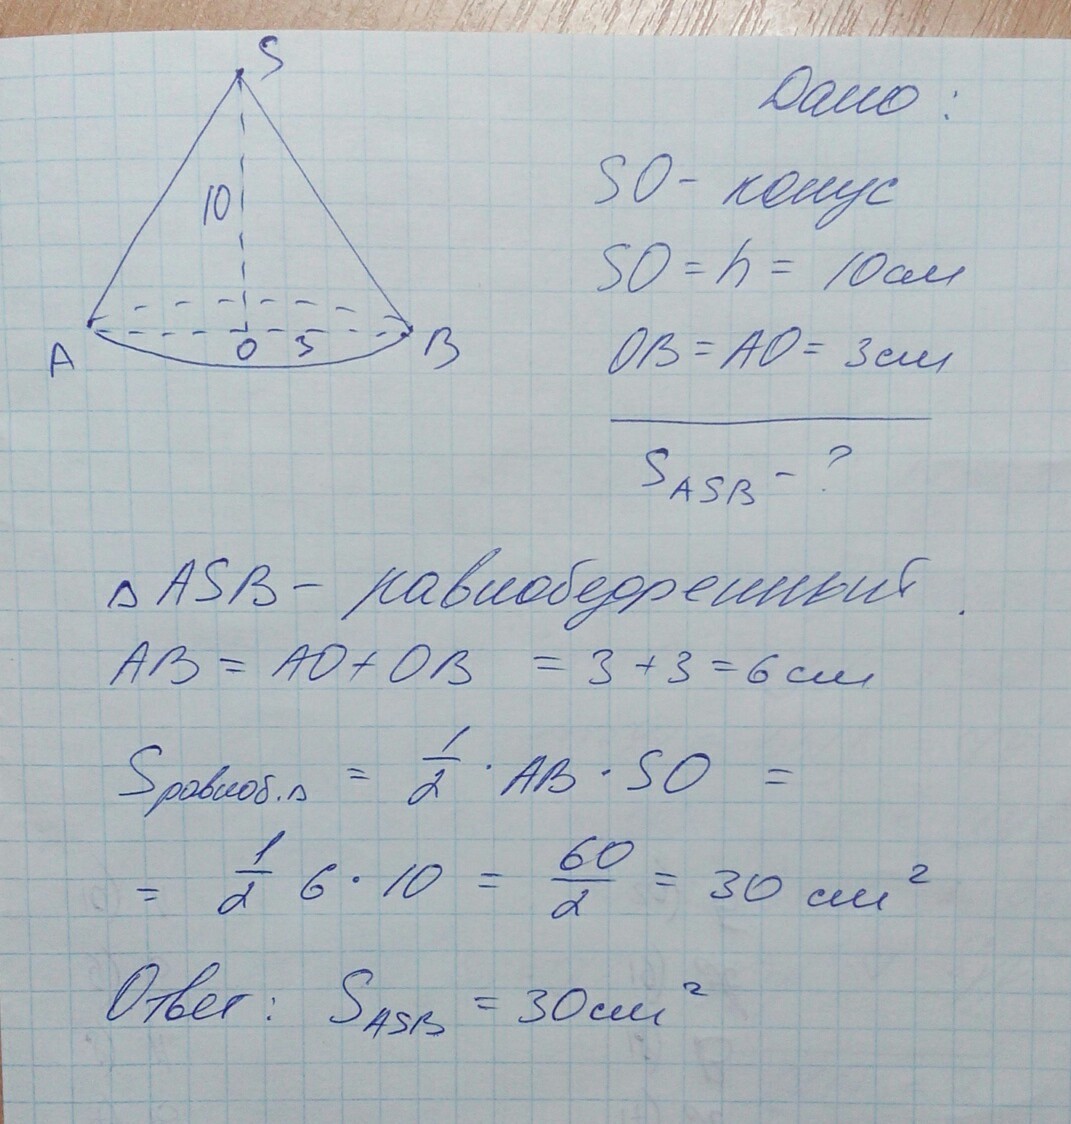 S
10
A O 3 B
Дано:
SO - конус
SO = h = 10 см
OB = AO = 3 см
S_ASB - ?
△ASB - равнобедренный.
AB = AO + OB = 3 + 3 = 6 см
Sравноб.△ = 1/2 · AB · SO =
= 1/2 6 · 10 = 60/2 = 30 см²
Ответ: S_ASB = 30 см²